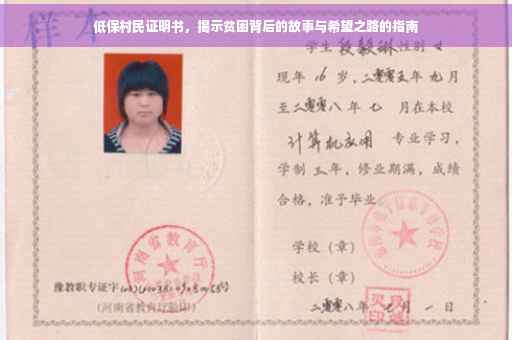 低保村民证明书，揭示贫困背后的故事与希望之路的指南
样本
学生段毅琳性别女
现年16岁，二零零五年九月
至二零零八年七月在本校
计算机应用专业学习，
学制三年，修业期满，成绩
合格，准予毕业。
学校（章）
校长（章）
二零零八年七月一日
河南省教育厅
豫教职专证字
（河南省教育厅验印）